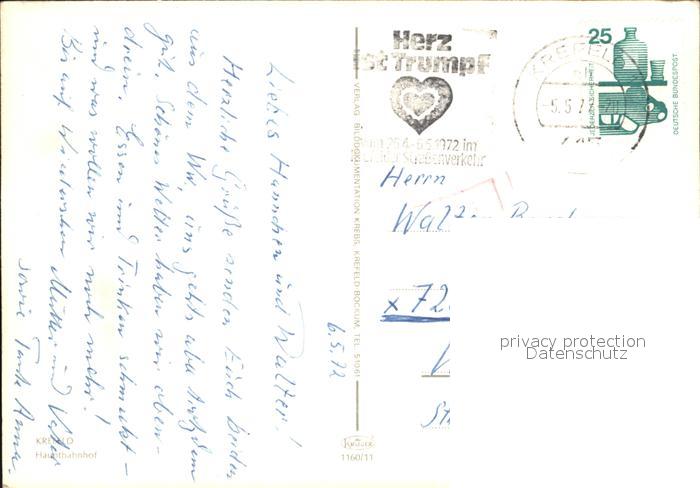 Liebes Hannchen und Walter!
Herzliche Grüße senden Euch beiden
aus dem Wir, uns geht's aber trotzdem
gut. Schönes Wetter haben wir oben-
drein. Essen und Trinken schmeckt –
und was wollen wir noch mehr!
Bis auf Wiedersehen Mutter und Vater
sowie Tante Anna.
6.5.72
KREFELD
Hauptbahnhof
VERLAG BILDDOKUMENTATION KREBS, KREFELD BOCKUM, TEL. 51061
Krüger
1160/11
Herz
ist Trumpf
vom 26.4.-6.5.1972 im
Straßenverkehr
KREFELD
-5.5.7
25
JEDERZEIT SICHERHEIT
DEUTSCHE BUNDESPOST
Herrn
x 72
privacy protection
Datenschutz